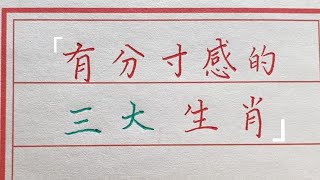 「有分寸感的
三大生肖」